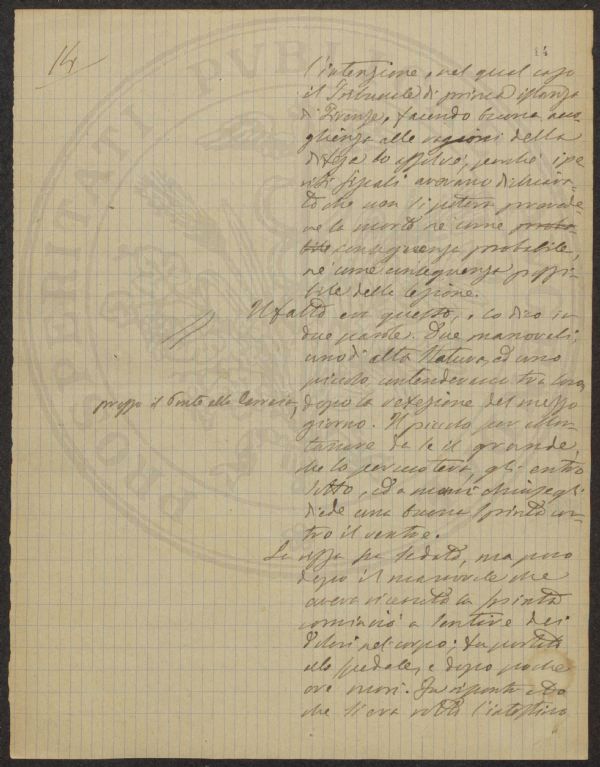 14
14
l'intenzione, nel qual caso
il Tribunale di prima istanza
di Firenze, facendo buona acco-
glienza alle ragioni della
difesa lo assolvé, perché i pe-
riti fiscali avevano dichiara-
to che non si poteva prevede-
re la morte né come proba-
bile conseguenza probabile,
né come conseguenza possi-
bile della lesione.
Il fatto era questo, e lo dico in
due parole. Due manovali,
uno di alta statura, ed uno
piccolo, contendevano tra loro,
presso il Ponte alla Carraia,
dopo la refezione del mezzo
giorno. Il piccolo per allon-
tanare da sé il grande,
che lo percuoteva, gli entrò
sotto, ed a mani chiuse gli
diede una buona spinta con-
tro il ventre.
La rissa fu sedata, ma poco
dopo il manovale che
aveva ricevuto la spinta
cominciò a sentire dei
dolori nel corpo; fu portato
allo spedale, e dopo poche
ore morì. Fu
che s'era rotto l'intestino